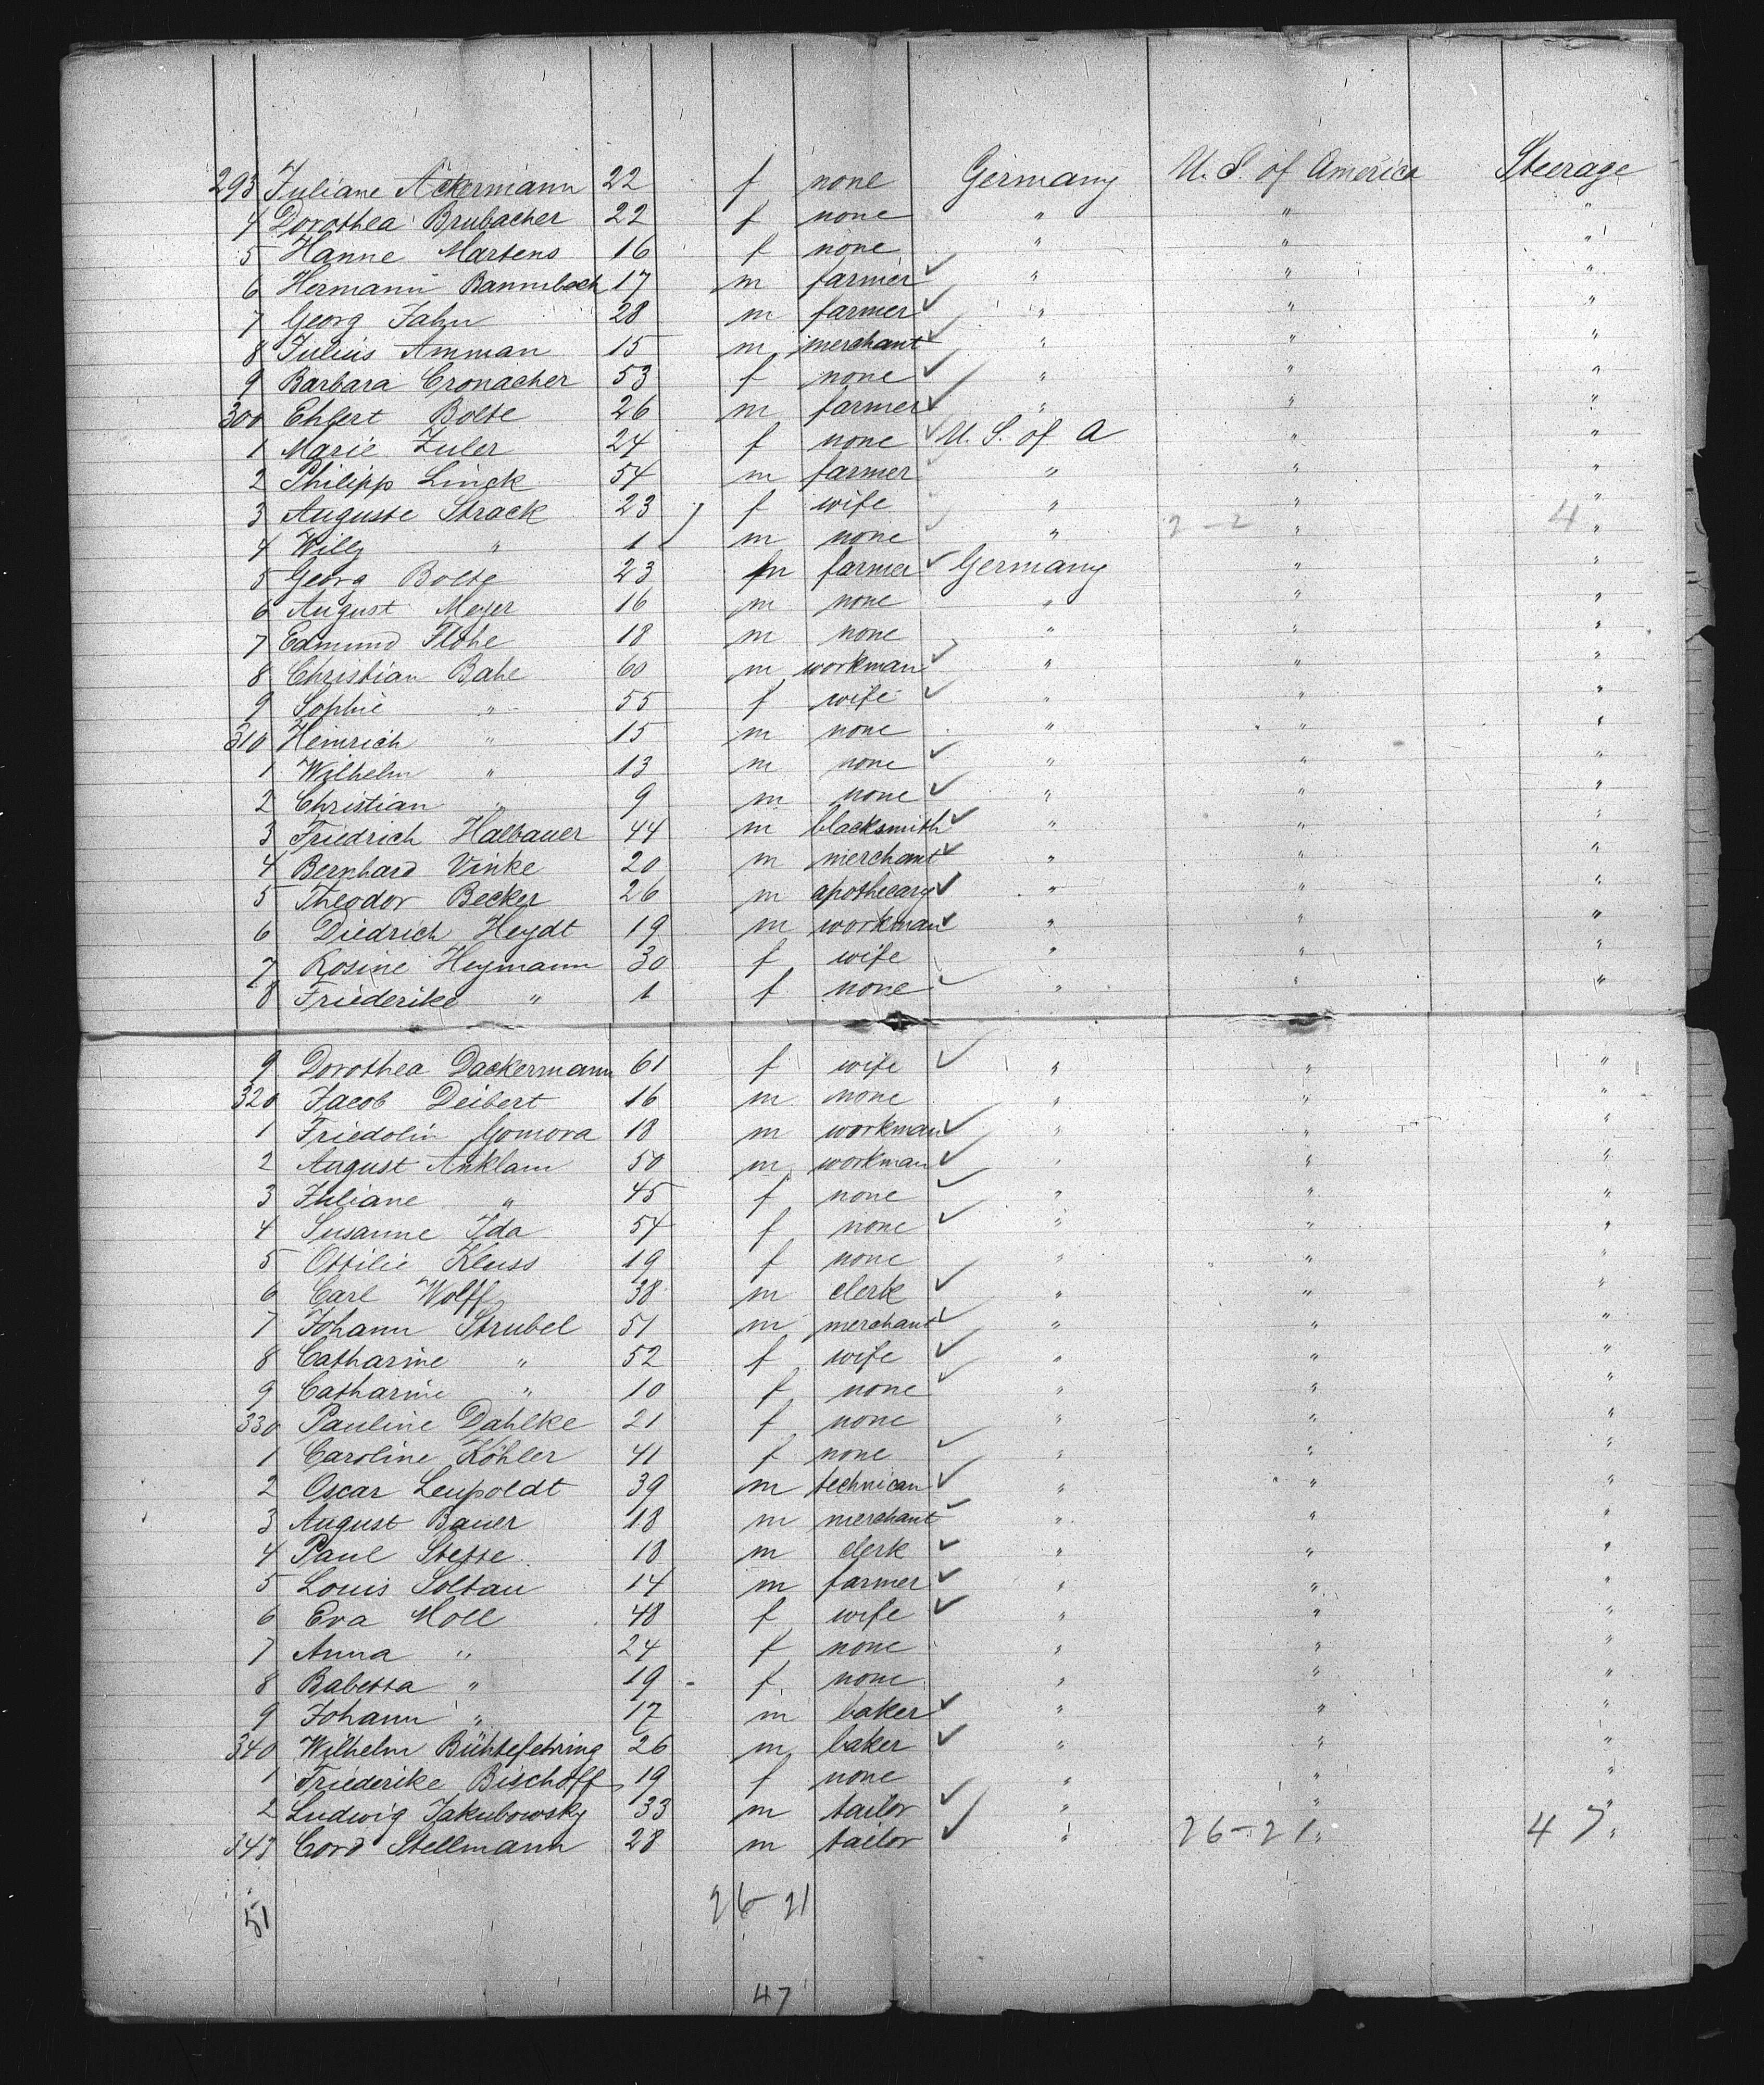 293 Juliane Ackermann 22 f none Germany U. S. of America Steerage
4 Dorothea Brubacher 22 f none " " "
5 Hanne Martens 16 f none " " "
6 Hermann Bannsbach 17 m farmer " " "
7 Georg Jahn 28 m farmer " " "
8 Julius Amman 15 m merchant " " "
9 Barbara Cronacher 53 f none " " "
300 Ehlert Bolte 26 m farmer " " "
1 Marie Zuler 24 f none U. S. of A " "
2 Philipp Linck 54 m farmer " " "
3 Auguste Strack 23 f wife " " "
4 Willy " 1 m none " 2-2 " 4 "
5 Georg Bolte 23 m farmer Germany " "
6 August Meyer 16 m none " " "
7 Edmund Flohe 18 m none " " "
8 Christian Bahe 60 m workman " " "
9 Sophie " 55 f wife " " "
310 Heinrich " 15 m none " " "
1 Wilhelm " 13 m none " " "
2 Christian " 9 m none " " "
3 Friedrich Halbauer 44 m blacksmith " " "
4 Bernhard Vinke 20 m merchant " " "
5 Theodor Becker 26 m apothecary " " "
6 Diedrich Heydt 19 m workman " " "
7 Rosine Heymann 30 f wife " " "
8 Friederike " 1 f none " " "
9 Dorothea Dackermann 61 f wife " " "
320 Jacob Deibert 16 m none " " "
1 Friedolin Gomora 18 m workman " " "
2 August Anklam 50 m workman " " "
3 Juliane " 45 f none " " "
4 Susanne Ida 54 f none " " "
5 Ottilie Kluss 19 f none " " "
6 Carl Wolff 38 m clerk " " "
7 Johann Strubel 51 m merchant " " "
8 Catharine " 52 f wife " " "
9 Catharine " 10 f none " " "
330 Pauline Dahlke 21 f none " " "
1 Caroline Köhler 41 f none " " "
2 Oscar Leupoldt 39 m technican " " "
3 August Bauer 18 m merchant " " "
4 Paul Stette 18 m clerk " " "
5 Louis Soltau 14 m farmer " " "
6 Eva Moll 48 f wife " " "
7 Anna " 24 f none " " "
8 Babetta " 19 f none " " "
9 Johann " 17 m baker " " "
340 Wilhelm Bühtefehring 26 m baker " " "
1 Friederike Bischoff 19 f none " " "
2 Ludwig Jakubowsky 33 m tailor " " "
343 Cord Stellmann 28 m tailor " 26-21 " 47 "
51 26-21
47